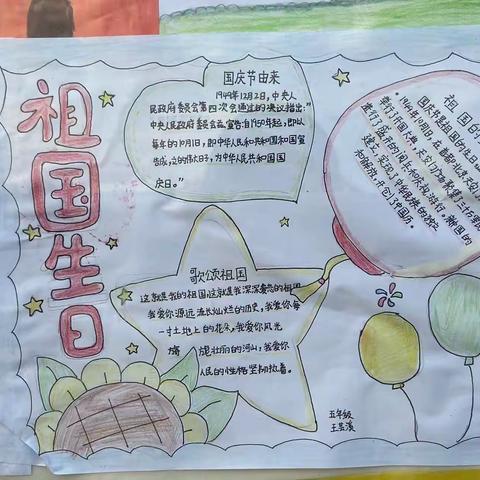 祖国生日
国庆节由来
1949年12月2日,中央人
民政府委员会第四次会通过的决议指出:"
中央人民政府委员会宣告:自1950年起,即以
每年的10月1日,即中华人民共和国和国宣
告成立的伟大日子,为中华人民共和国国
庆日。"
歌颂祖国
这就是我的祖国这就是我深深爱恋的祖国
我爱你源远流长灿烂的历史,我爱你每
一寸土地上的花朵,我爱你风光
旖旎壮丽的河山,我爱你
人民的性格坚韧执着。
祖国的
国庆是祖国的生日
1949年10月1日,在首都北京天安门
举行了开国大典,
建立,实现了中华民族的独立
和解放,开
五年级
王昱溪